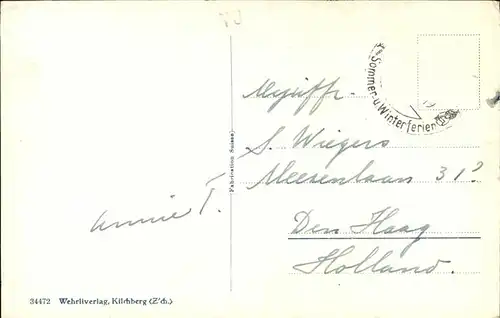 Sommer- u. Winterferien
Mejuffr.
S. Wiegers
Meezenlaan 31?
Den Haag
Holland.
Annie T.
Fabrication Suisse
34472 Wehrliverlag, Kilchberg (Z'ch.)